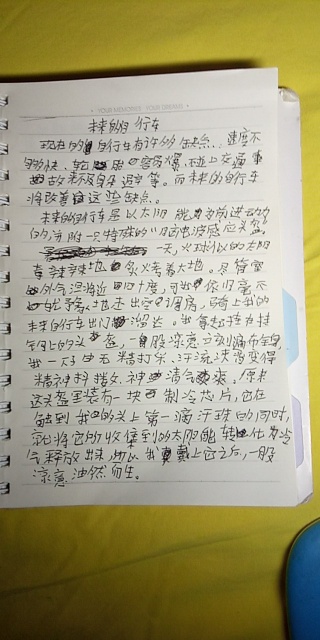 未来的自行车
现在的自行车有许多缺点、速度不
够快、轮胎容易爆、碰上交通事
故来不及自己逃 等。而未来的自行车
将改善这些缺点。
未来的自行车是以太阳能为前进动力
的,并附一只特殊的 感应头盔。
一天,火球似的太阳
火烤着大地。尽管室
外气温将近四十度,可我依旧毫不
犹豫地走出空调房,骑上我的
未来自行车出门溜达。我拿起挂在挂
钩上的头盔,一股凉意立刻漏布全身
我一下子由无精打采、汗流浃背变得
精神抖擞、神清气爽。原来
这头盔里装有一块制冷芯片,它在
触到我的头上第一滴汗珠的同时,
就将它的收集到的太阳能转化为冷
气释放出来,所以我戴上它之后,一股
凉意油然而生。